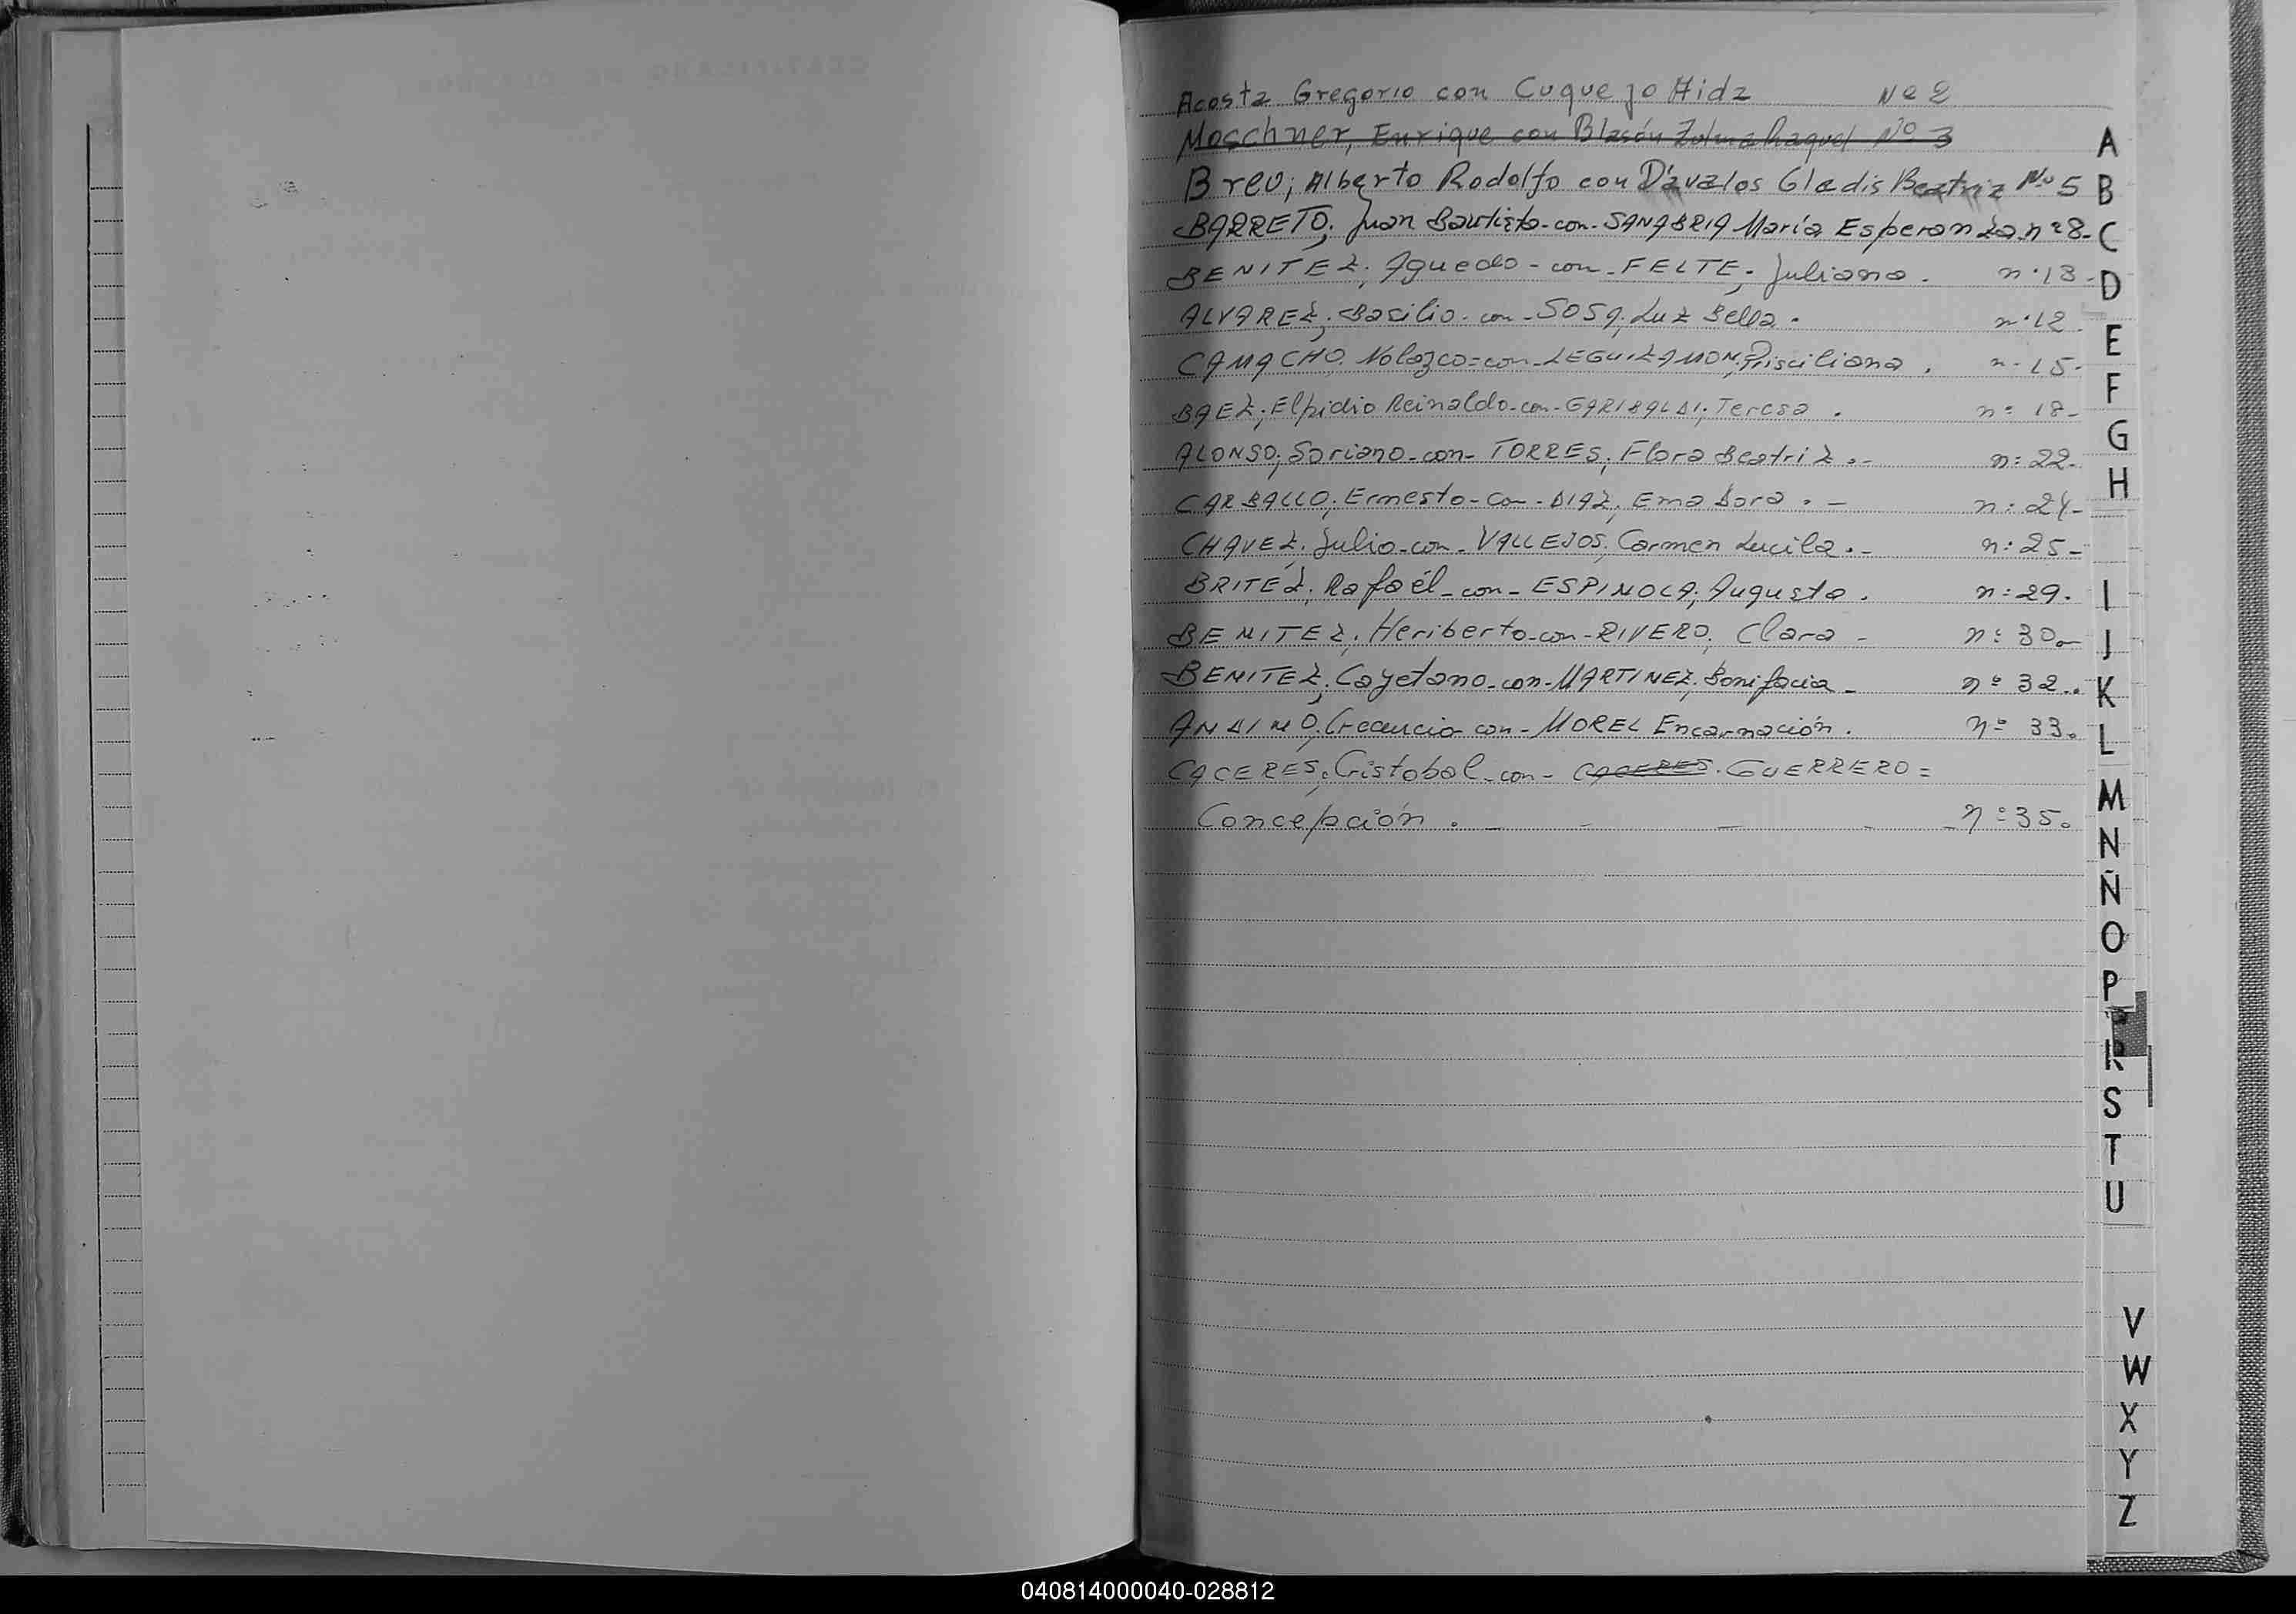 Acosta Gregorio con Cuquejo Hida Nº 2
Moschner, Enrique con Blasón Zulma Raquel Nº 3
Breu; Alberto Rodolfo con Dávalos Gladis Beatriz Nº 5
BARRETO; Juan Bautista-con-SANABRIA María Esperanza nº 8-
BENITEZ; Aguedo-con-FELTE; Juliana. nº 13-
ALVAREZ; Basilio-con-SOSA; Luz Bella. nº 12.
CAMACHO; Nolazco=con-LEGUIZAMON; Prisciliana. nº 15-
BAEZ; Elpidio Reinaldo-con-GARIBALDI; Teresa. nº 18-
ALONSO; Soriano-con-TORRES; Flora Beatriz.- nº 22-
CARBALLO; Ernesto-con-DIAZ; Ema Dora.- nº 24-
CHAVEZ; Julio-con-VALLEJOS; Carmen Lucila.- nº 25-
BRITEZ; Rafaél-con-ESPINOLA; Augusta. nº 29.
BENITEZ; Heriberto-con-RIVERO; Clara- nº 30.-
BENITEZ; Cayetano-con-MARTINEZ; Bonifacia- nº 32..
ANDINO; con-MOREL Encarnación. nº 33.
CACERES; Cristobal-con-CACERES. GUERRERO=
Concepción.- - - - - nº 35.
A
B
C
D
E
F
G
H
I
J
K
L
M
N
Ñ
O
P
R
S
T
U
V
W
X
Y
Z
040814000040-028812